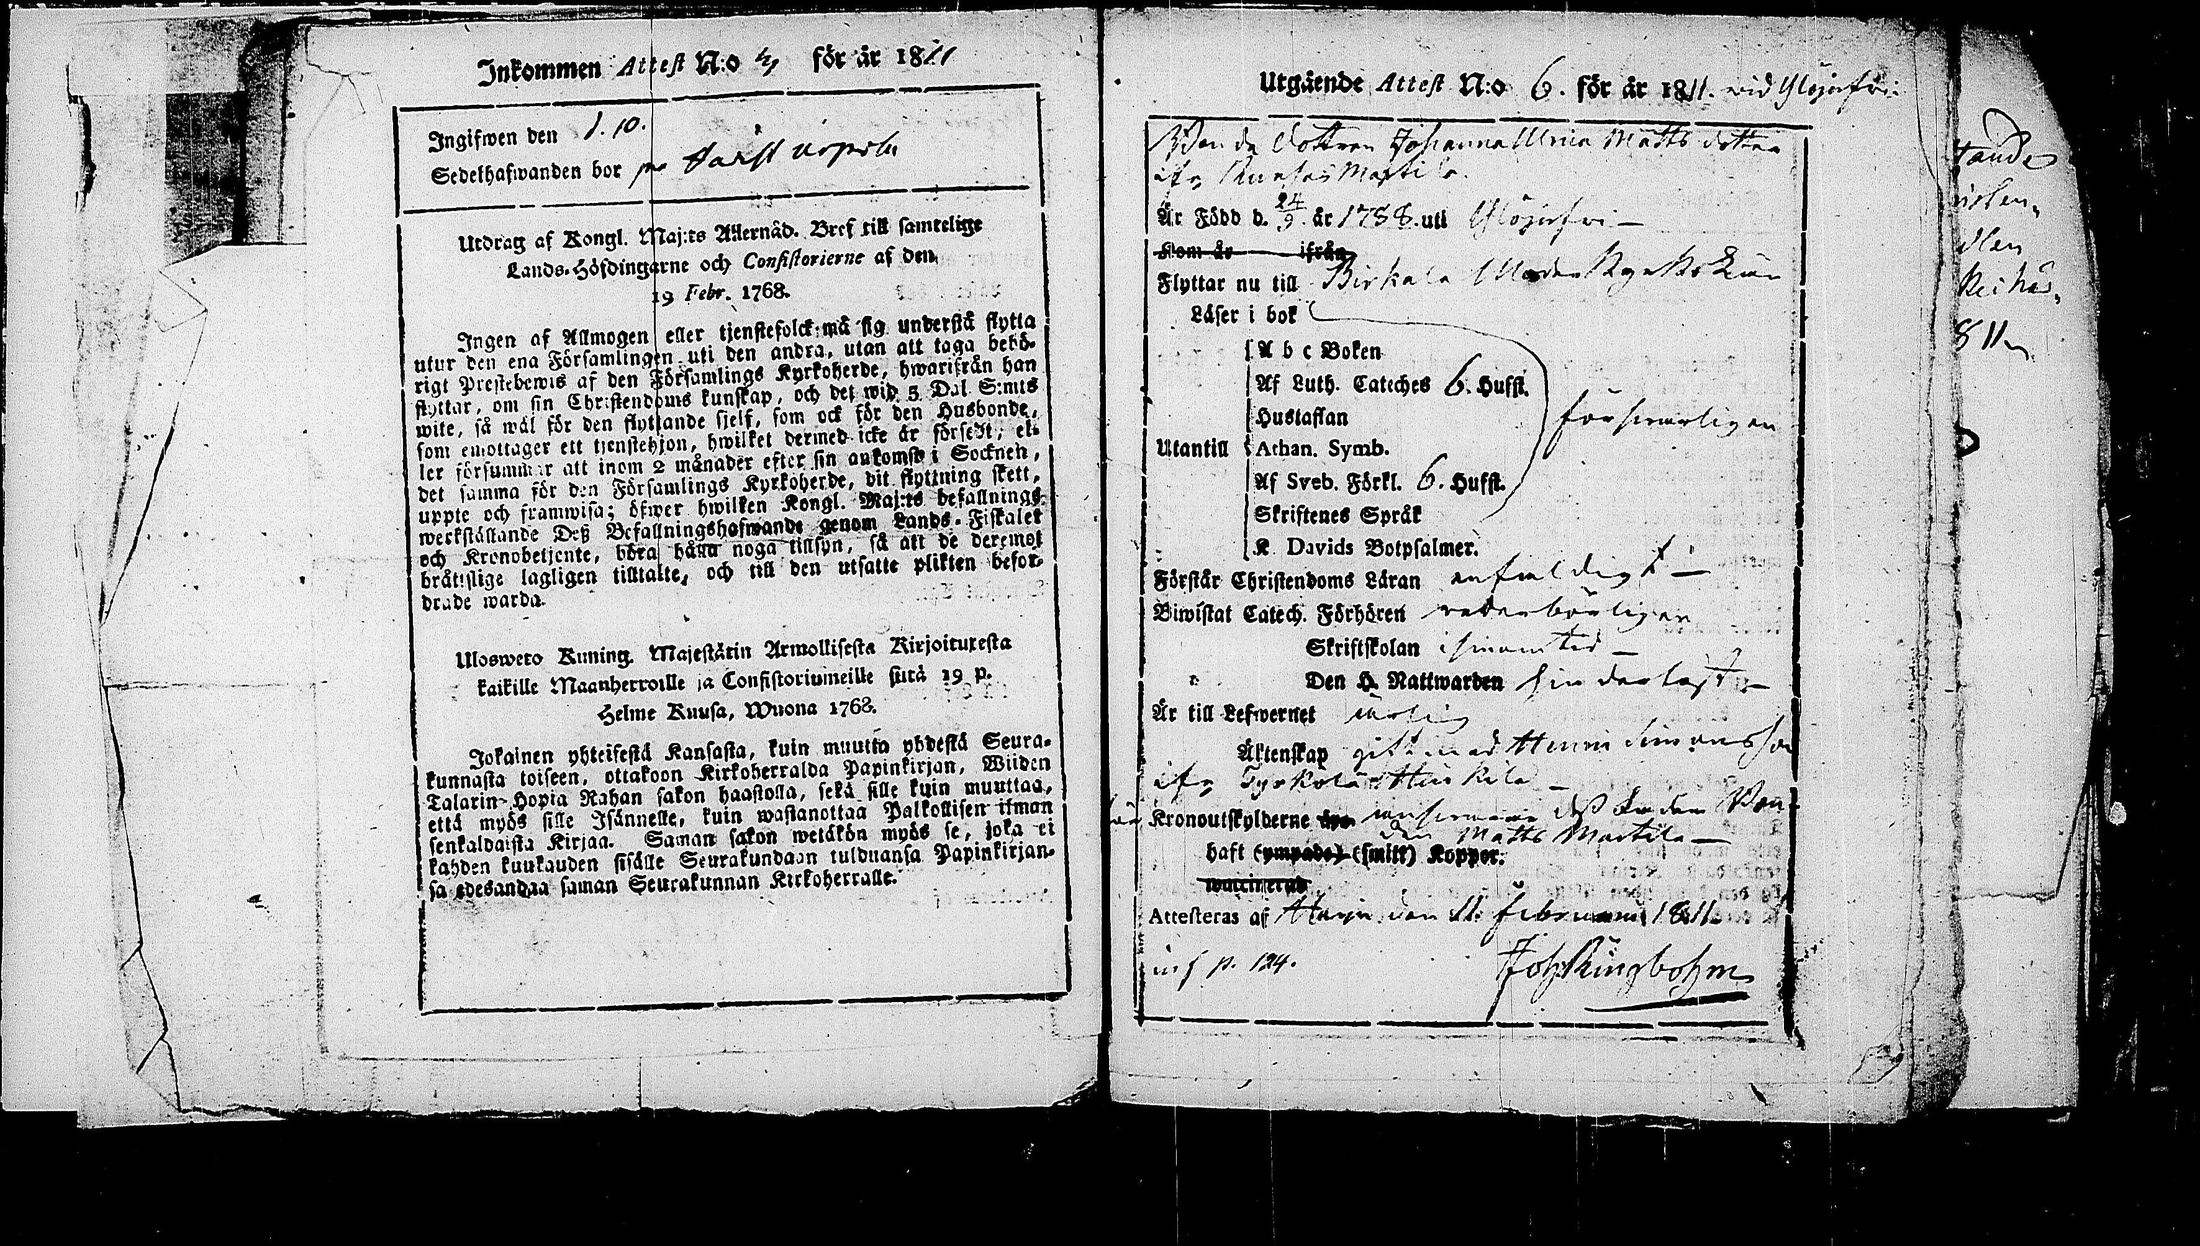 Inkommen Attest N:o 4 för år 1811
Ingifwen den 1. 10.
Sedelhafwanden bor
Utdrag af Kongl. Maj:ts Allernåd. Bref till samtelige
Lands-Höfdingarne och Consistorierne af den
19 Febr. 1768.
Ingen af Allmogen eller tjenstefolck må sig understå flytta
utur den ena Församlingen uti den andra, utan att taga behö-
rigt Prestebewis af den Församlings Kyrkoherde, hwarifrån han
flyttar, om sin Christendoms kunskap, och det wid 5 Dal. S:mts
wite, så wäl för den flyttande sjelf, som ock för den Husbonde,
som emottager ett tjenstehjon, hwilket dermed icke är försedt, el-
ler försummar att inom 2 månader efter sin ankomst i Socknen,
det samma för den Församlings Kyrkoherde, dit flyttning skett,
uppte och framwisa; öfwer hwilken Kongl. Maj:ts befallnings
werkställande Deß Befallningshafwande genom Lands-Fiskaler
och Kronobetjente, böra hålla noga tillsyn, så att de deremot
bråtslige lagligen tilltalte, och till den utsatte plikten befor-
drade warda.
Uloswero Kuning. Majestätin Armollisesta Kirjoituxesta
kaikille Maanherroille ja Consistoriumeille siitä 19 p.
Helme Kuusa, Wuona 1768.
Jokainen yhteisestä Kansasta, kuin muutta yhdestä Seura-
kunnasta toiseen, ottakoon Kirkoherralda Papinkirjan, Wiiden
Talarin Hopia Rahan sakon haastolla, sekä sille kuin muuttaa,
että myös sille Isännelle, kuin wastanottaa Palkollisen ilman
senkaldaista Kirjaa. Saman sakon wetäkön myös se, joka ei
kahden kuukauden sisälle Seurakundaan tulduansa Papinkirjan-
sa edesandaa saman Seurakunnan Kirkoherralle.
Utgående Attest N:o 6. för år 1811. wid Ylöjerfwi
Bonde dottren Johanna Ulrica Matts dotter
ifr. Runsas Martila.
Är Född d. 24/9. år 1788. uti Ylöjerfwi –
Kom år ifrån
Flyttar nu till Birkala Moder Kyrko
Läser i bok
A b c Boken
Af Luth. Cateches 6. Hufst.
Hustaflan
förswarligen
Utantill Athan. Symb.
Af Sveb. Förkl. 6. Hufst.
Skriftenes Språk
K. Davids Botpsalmer.
Förstår Christendoms Läran enfaldigt –
Biwistat Catech. Förhören wederbörligen
Skriftskolan
Den H. Nattwarden
Är till Lefwernet ärlig
Äktenskap gift med Henric Simonsson
ifr. Tyrkölä
Kronoutskylderne Bon-
den Matts Martila –
haft (ympade) (smitt) Koppor.
waccinerad
Attesteras af den 11. februarii 1811.
inf p. 124.
Joh Ringbohm
8 11